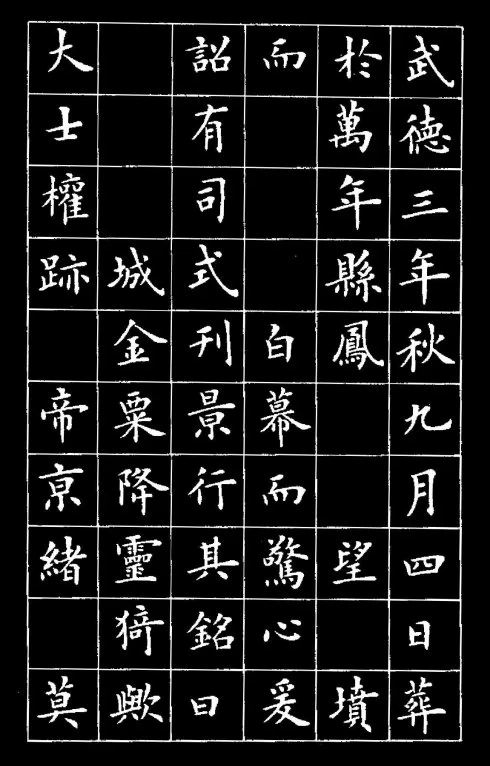 武德三年秋九月四日葬
於萬年縣鳳望墳
而白幕而驚心爰
詔有司式刊景行其銘曰
城金粟降靈猗歟
大士權跡帝京緒莫